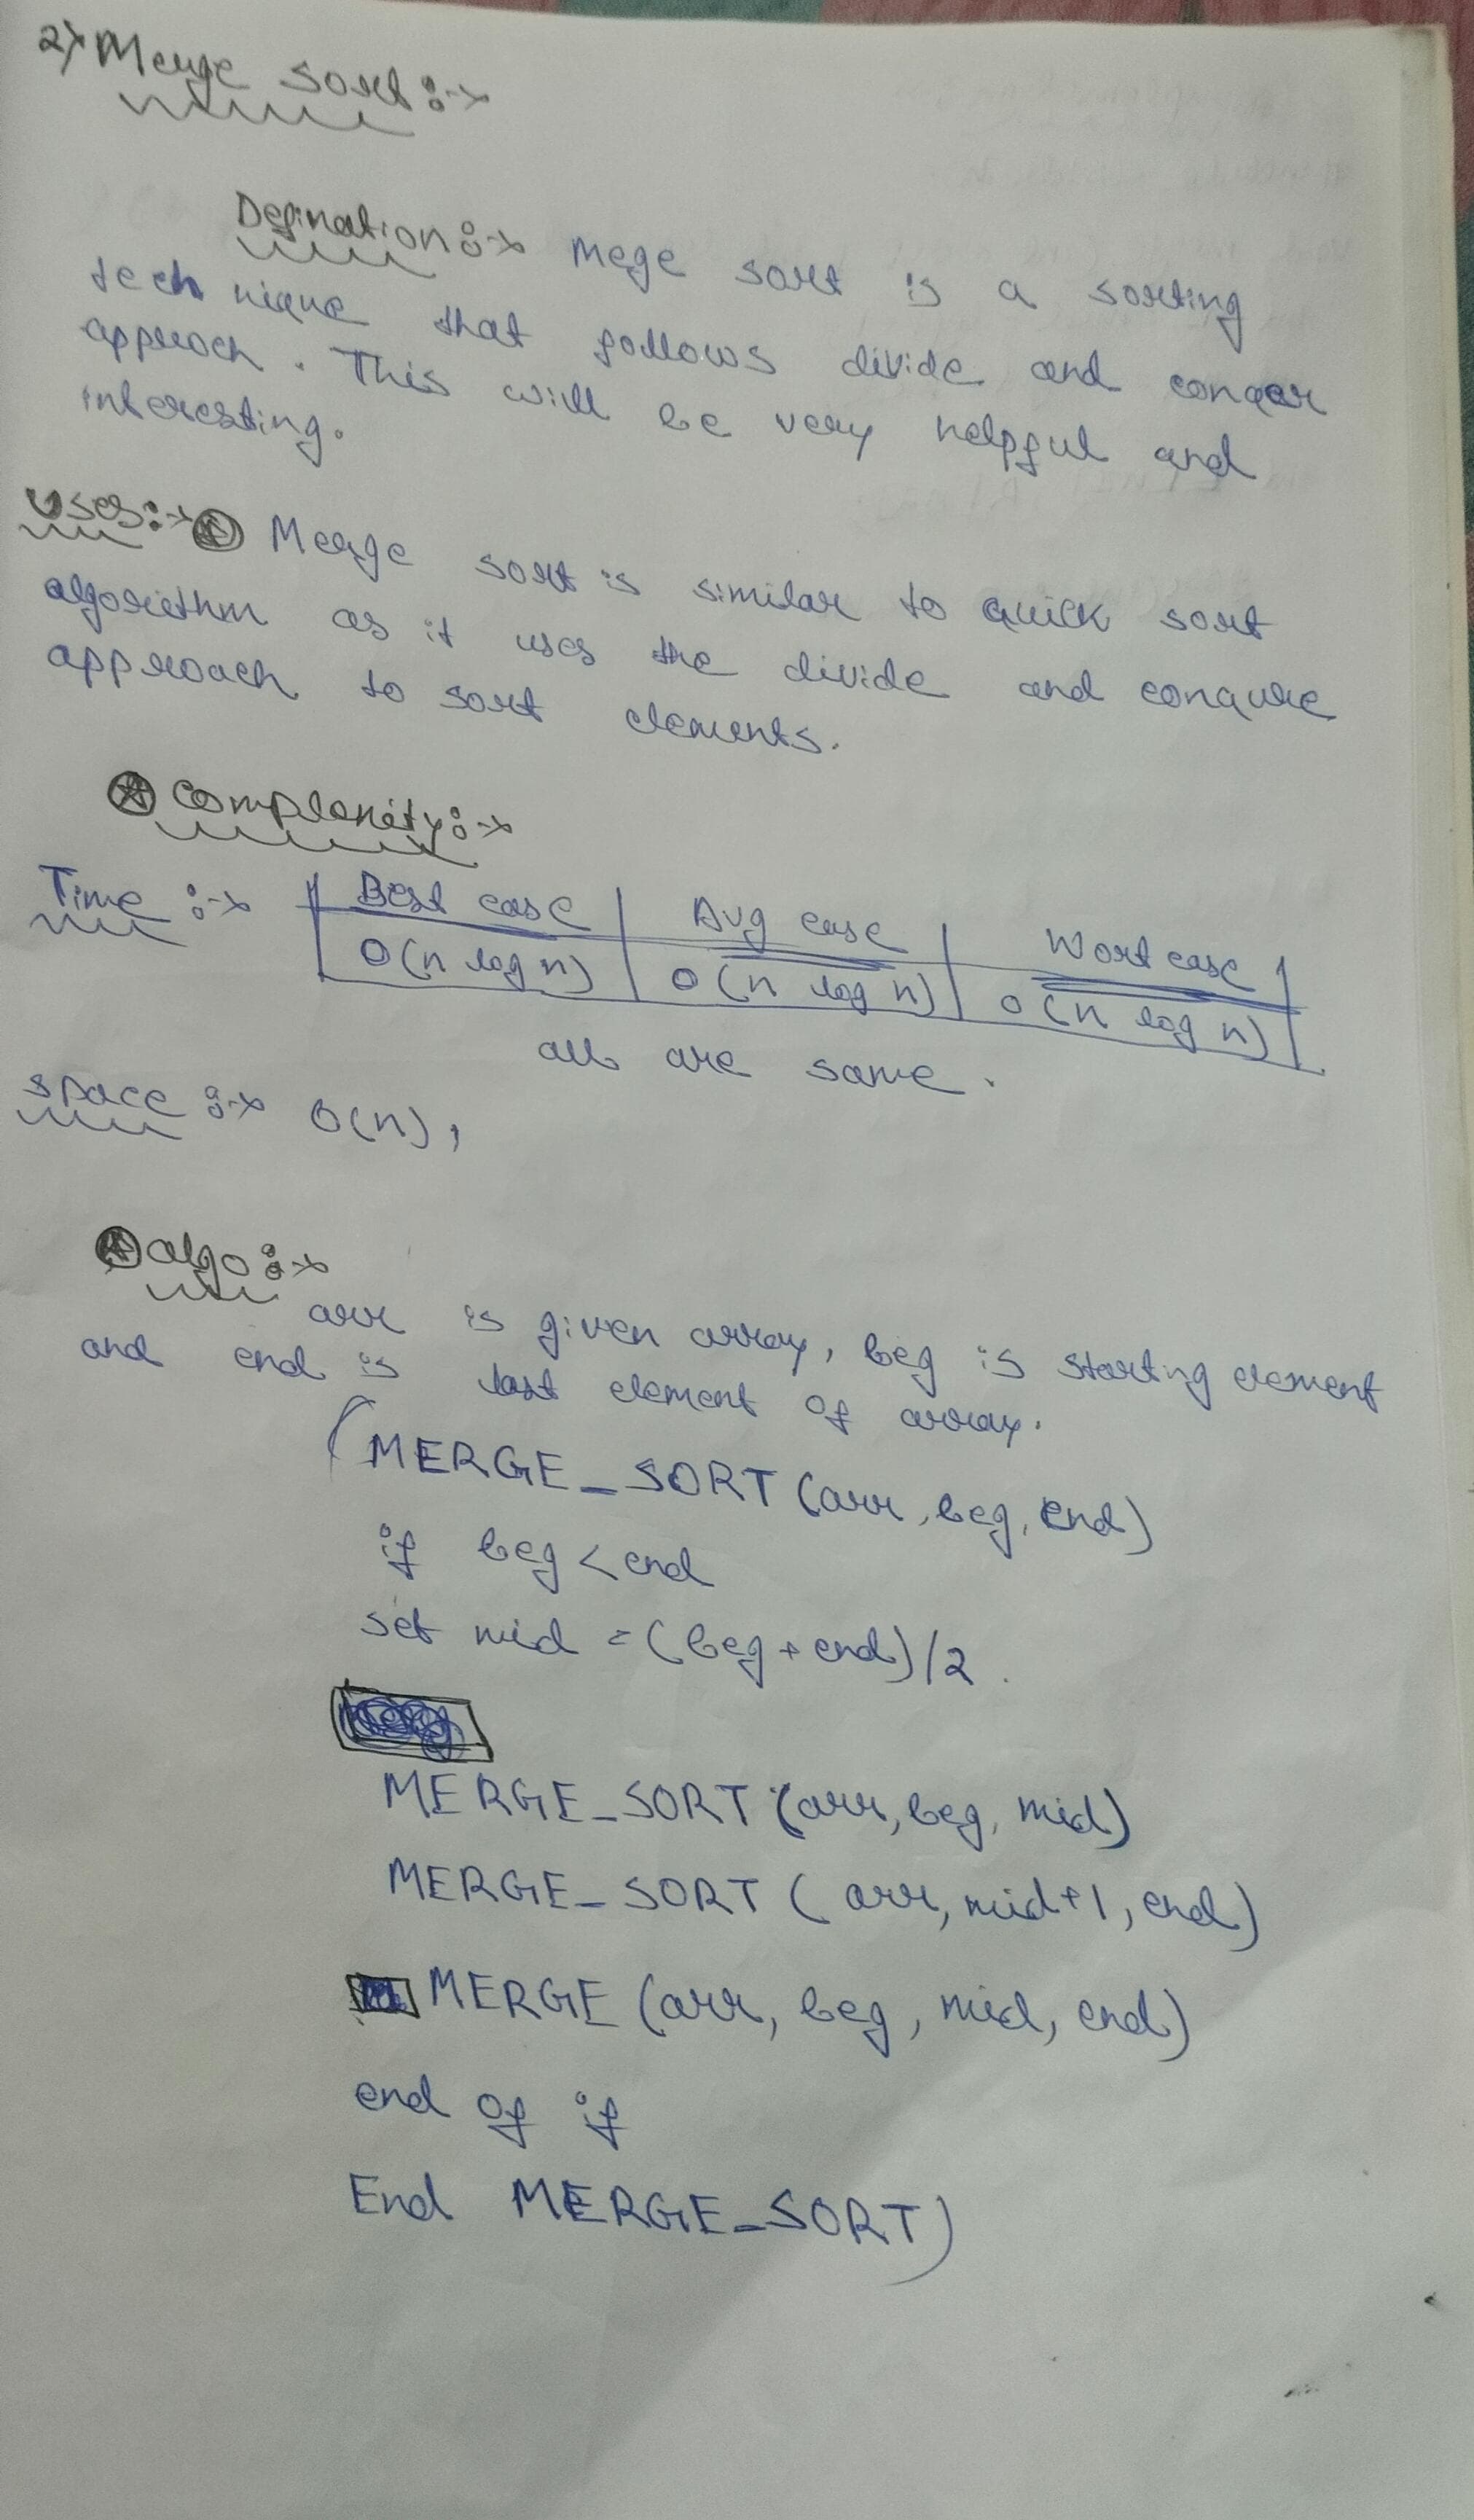 2) Merge sort :->
Defination :-> Mege sort is a sorting
technique that follows divide and conqer
approch. This will be very helpful and
interesting.
Uses :-> Merge sort is similar to quick sort
algorithm as it uses the divide and conqure
approach to sort elements.
complexity :->
Time :-> Best case | Avg case | Wort case
O(n log n) | O(n log n) | O(n log n)
all are same.
space :-> O(n),
algo :->
arr is given array, beg is starting element
and end is last element of array.
(MERGE_SORT (arr, beg, end)
if beg < end
set mid = (beg + end)/2.
MERGE_SORT (arr, beg, mid)
MERGE_SORT (arr, mid+1, end)
MERGE (arr, beg, mid, end)
end of if
End MERGE_SORT)